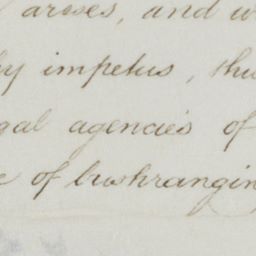 arises, and w
by impetus, thu
gal agencies of
e of bushranging